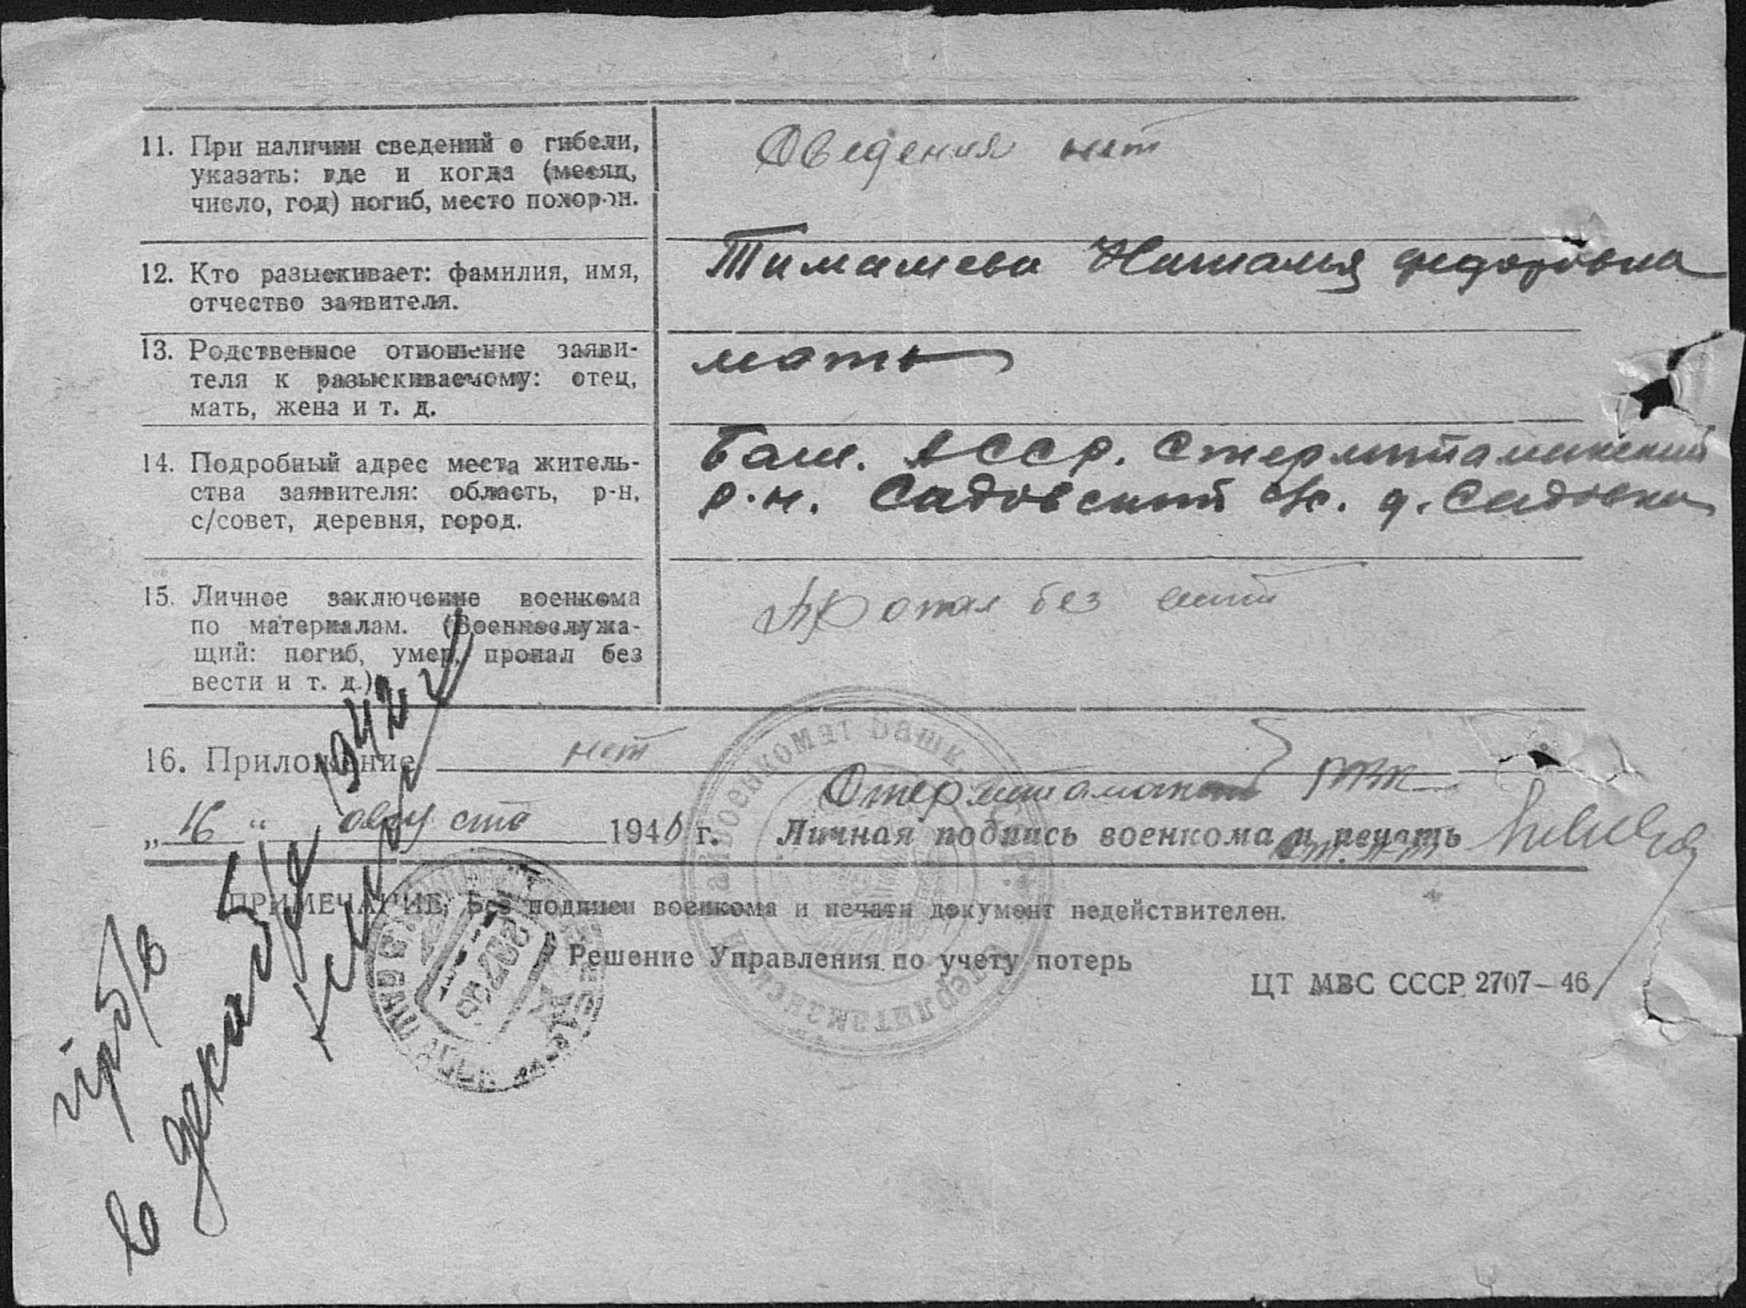 11. При наличии сведений о гибели,
указать: где и когда (месяц,
число, год) погиб, место похорон.
Сведения нет
12. Кто разыскивает: фамилия, имя,
отчество заявителя.
Тимашева Наталья Федоровна
13. Родственное отношение заяви-
теля к разыскиваемому: отец,
мать, жена и т. д.
мать
14. Подробный адрес места житель-
ства заявителя: область, р-н,
с/совет, деревня, город.
Баш. АССР. Стерлитамакский
р.н. Садовский с/с. д. Садовка
15. Личное заключение военкома
по материалам. (Военнослужа-
щий: погиб, умер, пропал без
вести и т. д.)
Пропал без вести
16. Приложение нет
Стерлитамакский РВК
„16“ августа 1946 г. Личная подпись военкома и печать
ПРИМЕЧАНИЕ: Без подписи военкома и печати документ недействителен.
Решение Управления по учету потерь
ЦТ МВС СССР 2707—46
пр б/в
в декабре 1942 г